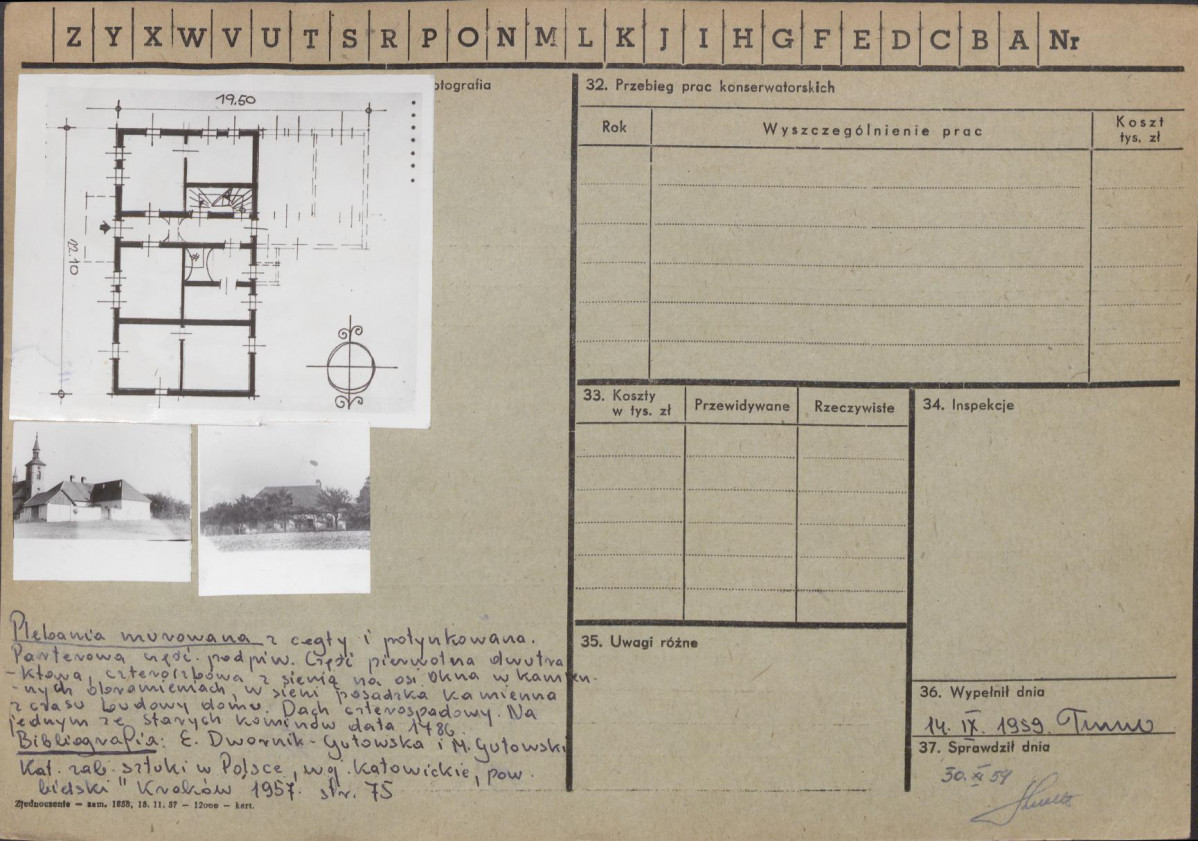 Z Y X W V U T S R P O N M L K J I H G F E D C B A Nr
otografia
19.50
12.10
32. Przebieg prac konserwatorskich
Rok
Wyszczególnienie prac
Koszt
tys. zł
33. Koszty
w tys. zł
Przewidywane
Rzeczywiste
34. Inspekcje
35. Uwagi różne
36. Wypełnił dnia
14. IX. 1959
37. Sprawdził dnia
30. XI 59
Plebania murowana z cegły i potynkowana.
Parterowa część. podpiw. Część pierwotna dwutra
-ktowa, czteroizbowa z sienią na osi okna w kamien.
-nych obramieniach, w sieni posadzka kamienna
z czasu budowy domu. Dach czterospadowy. Na
jednym ze starych kominów data 1786.
Bibliografia: E. Dwornik-Gutowska i M. Gutowski
Kat. zab. sztuki w Polsce, wg. Katowickie, pow.
bielski" Kraków 1957. str. 75
Zjednoczenie — zam. 1858, 15. 11. 57 — 12000 — kart.